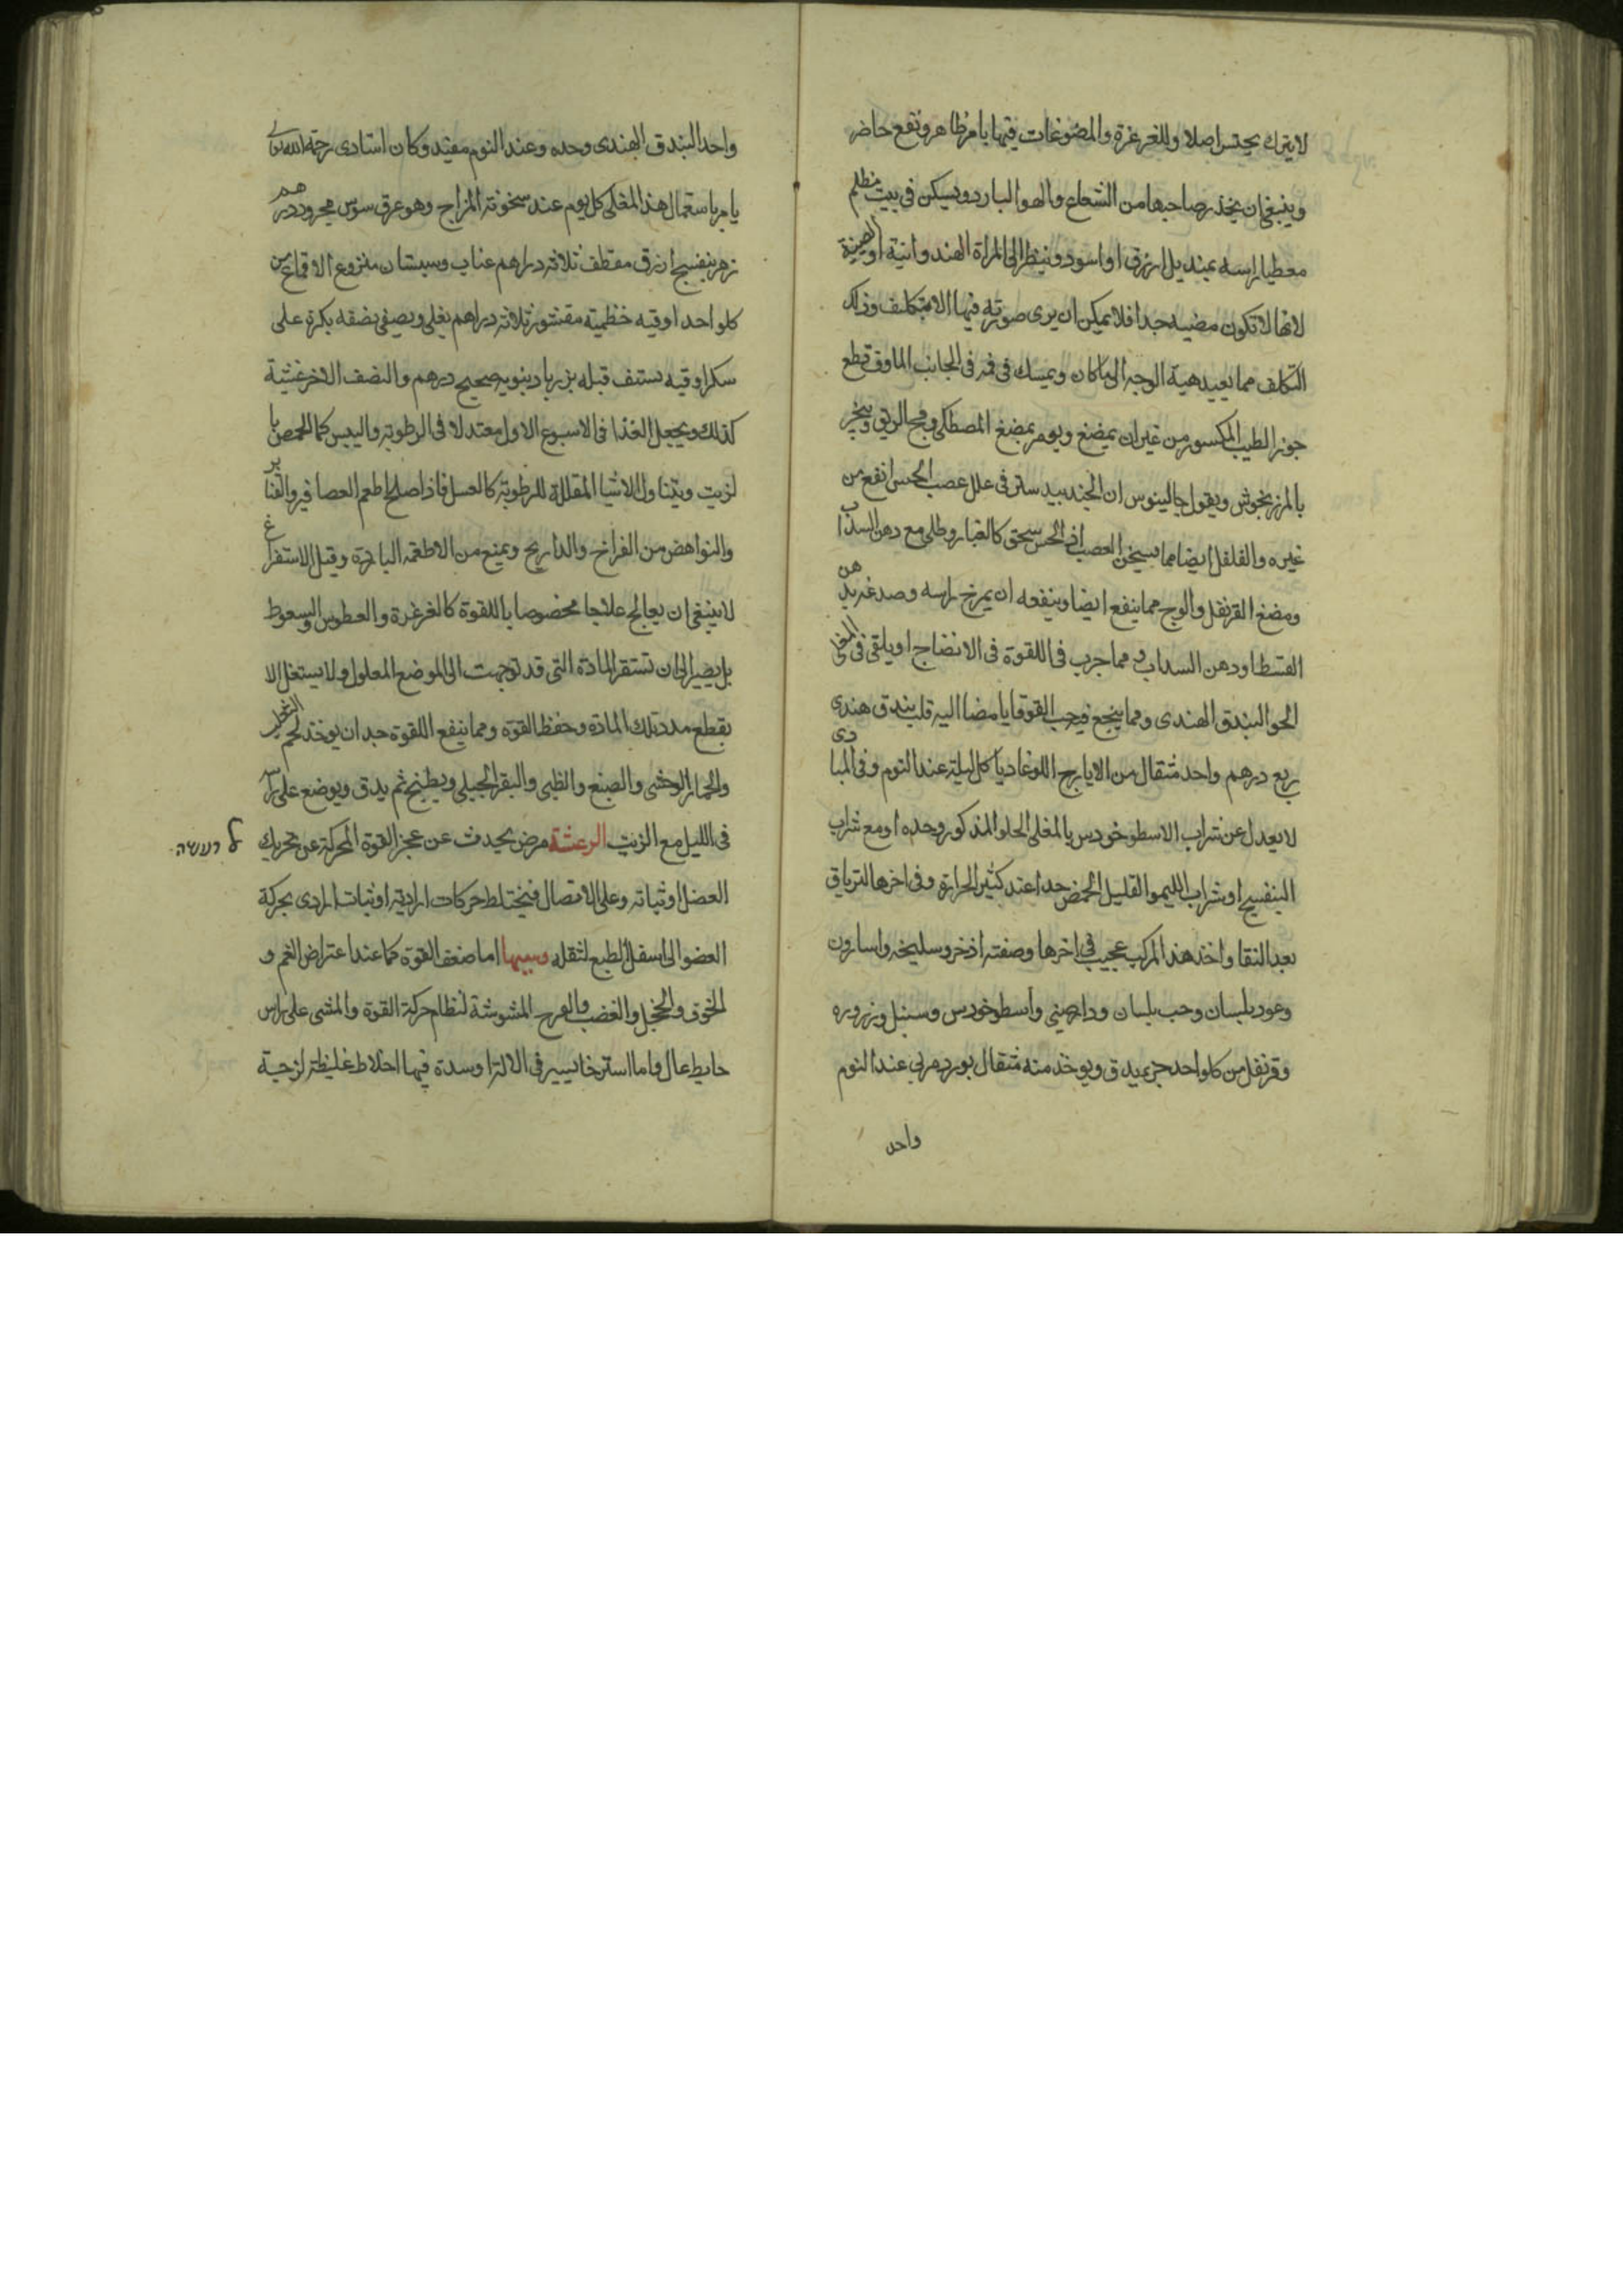 لايترك يحتبس اصلا وللغرغرة والمضوغات فيها يا مرظاهر ونفع حاضر
وينبغى ان يحذر صاحبها من الشعاع والهوا البارد ويسكن فى بيت مظلم
مغطيا راسه بمنديل ازرق او اسود وينظر الى المراة الهندوانية او الصينية
لانها لا تكون مضيه جدا فلا يمكن ان يرى صورته فيها الا بتكلف وذلك
التكلف مما يعيد هية الوجه الى ما كان ويمسك فى فمه فى الجانب الماوف قطع
جوز الطيب المكسور من غير ان يمضغ ويومر بمضغ المصطكى وفح الريق ويبخر
بالمرزنجوش ويقول جالينوس ان الجندبيدستر فى علل عصب الحس انفع من
غيره والفلفل ايضا مما يسخن العصب اذ الحس سحق كالغبار وطلى مع دهن السداب
ومضغ القرنفل والوج مما ينفع ايضا وينفعه ان يمرخ راسه وصدغه بدهن
القسط او دهن السداب ومما جرب فى اللقوة فى الانضاج او يلقى فى المغلى
الحو البندق الهندى ومما ينجع فيه حب القوقايا مضاا اليه قلب بندق هندى
ربع درهم واحد مثقال من الايارج اللوغاديا كل ليلة عند النوم وفى المبادى
لا يعدل عن شراب الاسطوخودس بالمغلى الحلو المذكور وحده او مع شراب
البنفسج او شراب الليموا القليل الحمض جدا عند كثير الحرارة وفى اخرها الترياق
بعد النقا واخذ هذا المركب عجيب فى اخرها وصفته اذخر وسليخه واسارون
وعود بلسان وحب بلسان ودارصينى واسطوخودس وسنبل وزر ورد
وقرنفل من كلواحد جز يدق ويوخذ منه مثقال بورد مربى عند النوم
واحد
واحد البندق الهندى وحده وعند النوم مفيد وكان استادى رحمه الله تعالى
يامر باستعمال هذا المغلى كل يوم عند سخونة المزاج وهو عرق سوس مجرود درهم
زهر بنفسج ازرق مقطف ثلاثه دراهم عناب وسبستان منزوع الاقماع من
كلواحد اوقيه خطميته مقشور ثلاثه دراهم يغلى ويصفى نصفه بكرة على
سكر اوقيه يستف قبله بزر بادرنبويه صحيح درهم والنصف الاخر عشية
كذلك ويجعل الغذا فى الاسبوع الاول معتدلا فى الرطوبة واليبس كما الحمص با
لزيت ويتناول الاشيا المقللة للرطوبة كالعسل فاذا صلح اطعم العصافير والقنابر
والنواهض من الفراخ والدراريج ويمنع من الاطعمه الباردة وقبل الاستفراغ
لا ينبغى ان يعالج علاجا مخصوصا باللقوة كالغرغرة والعطوس والسعوط
بل يصير الى ان تستقر المادة التى قد توجهت الى الموضع المعلول ولا يستغل الا
بقطع مدد تلك المادة وحفظ القوة ومما ينفع اللقوة جدا ان يوخذ لحم
والحمار الوحشى والضبع والظبى والبقر الجبلى ويطبخ ثم يدق ويوضع على راسه
فى الليل مع الزيت الرعشة مرض يحدث عن عجز القوة المحركة عن تحريك
רעשה
العضل او ثباته وعلى الاتصال فيختلط حركات ارادية او ثبات ارادى بحركة
العضو الى اسفل الطبع لثقله وسببها اما ضعف القوة كما عند اعتراض الغم و
الخوف والخجل والغضب والفرح المشوشة لنظام حركة القوة والمشى على راس
حايط عال واما استرخا يسير فى الالة او سدة فيها اخلاط غليظة لزجية